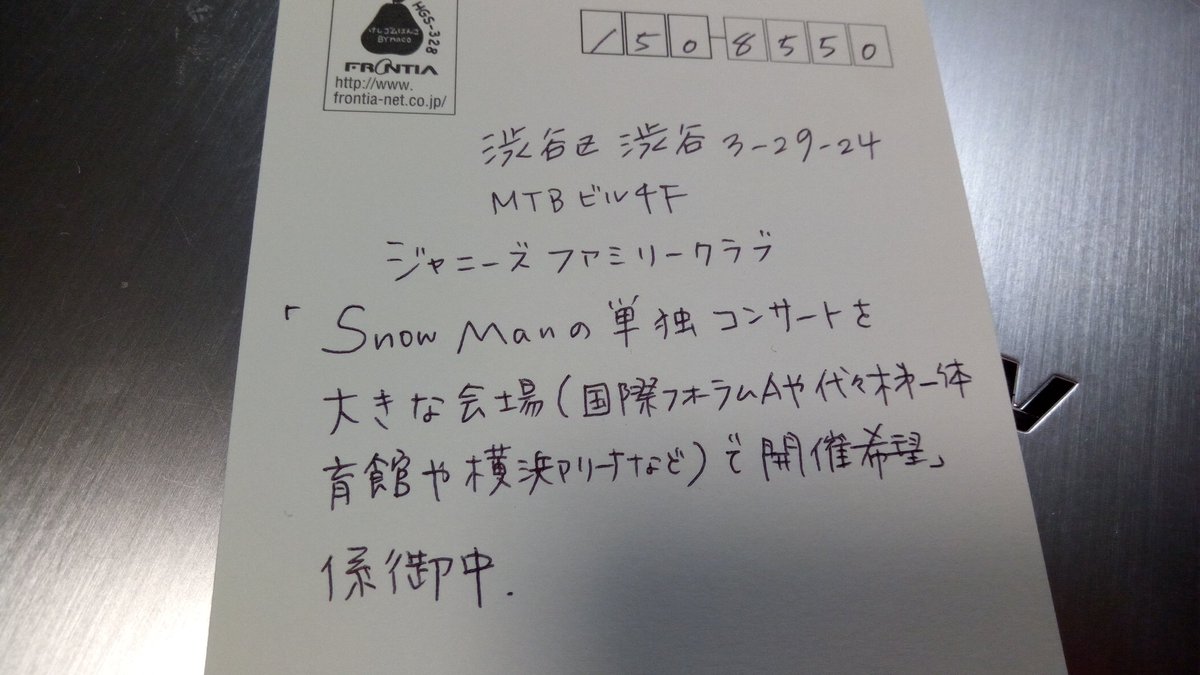 HGS-328
けしゴムはんこ
BY maco
FRONTIA
http://www.
frontia-net.co.jp/
150-8550
渋谷区 渋谷 3-29-24
MTBビル4F
ジャニーズファミリークラブ
「Snow Manの単独コンサートを
大きな会場(国際フォーラムAや代々木第一体
育館や横浜アリーナなど)で開催希望」
係御中.